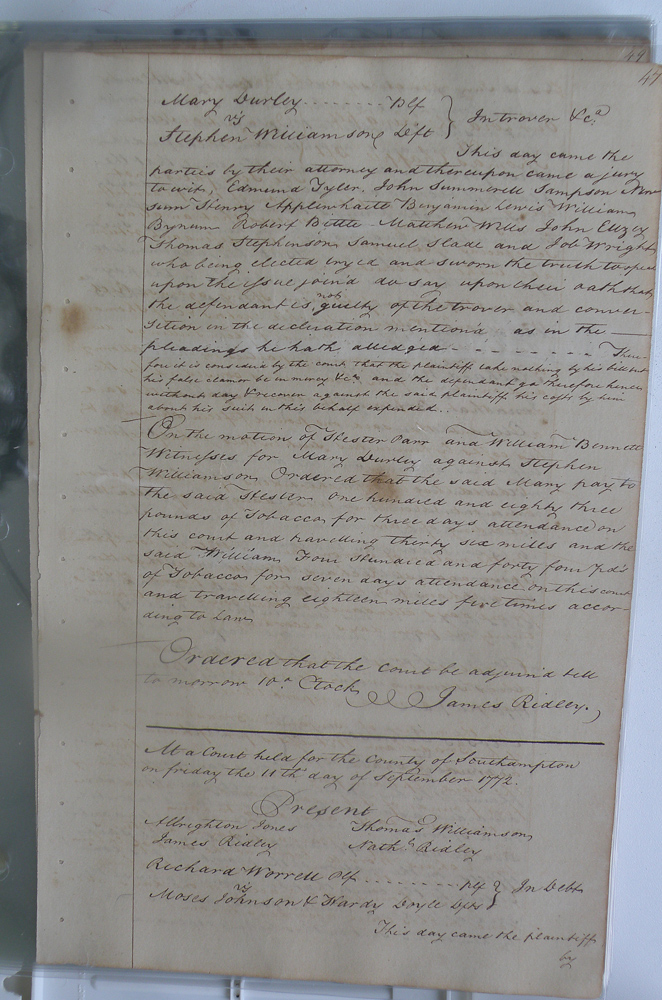 49
47
Mary Durley - - - - - - - Plf } In trover &ca
vs
Stephen Williamson Deft
This day came the
parties by their attorney and thereupon came a jury
to wit, Edmund Tyler, John Summerell Sampson New-
sum Henry Applewhaite Benjamin Lewis William
Bynum Robert Bittle Matthew Wills John Clizey
Thomas Stephenson Samuel Slade and Job Wright
who being elected tryed and sworn the truth to speak
upon the issue join'd do say upon their oath that
the defendant is not guilty of the trover and conver-
sition in the declaration mention'd as in the
pleadings he hath alledged - - - - - - - - - There-
fore it is considered by the court that the plaintiff take nothing by his bill but
his false clamor be in mercy &ca and the defendant go therefore hence
without day & recover against the said plaintiff his costs by him
about his suit in this behalf expended..
On the motion of Hester Parr and William Bennett
Witnesses for Mary Durley against Stephen
Williamson Ordered that the said Mary pay to
the said Hester one hundred and eighty three
pounds of Tobacco for three days attendance on
this court and travelling thirty six miles and the
said William Four Hundred and forty four pds
of Tobacco for seven days attendance on this court
and travelling eighteen miles five times accor-
ding to Law
Ordered that the court be adjurn'd till
to morrow 10 a Clock James Ridley.
At a Court held for the County of Southampton
on friday the 11th day of September 1772.
Present
Albrighton Jones Thomas Williamson
James Ridley Nathl Ridley
Richard Worrell Plf - - - - - - - - - Plf } In Debt
vs
Moses Johnson & Hardy Doyle Defts
This day came the plaintiff
by